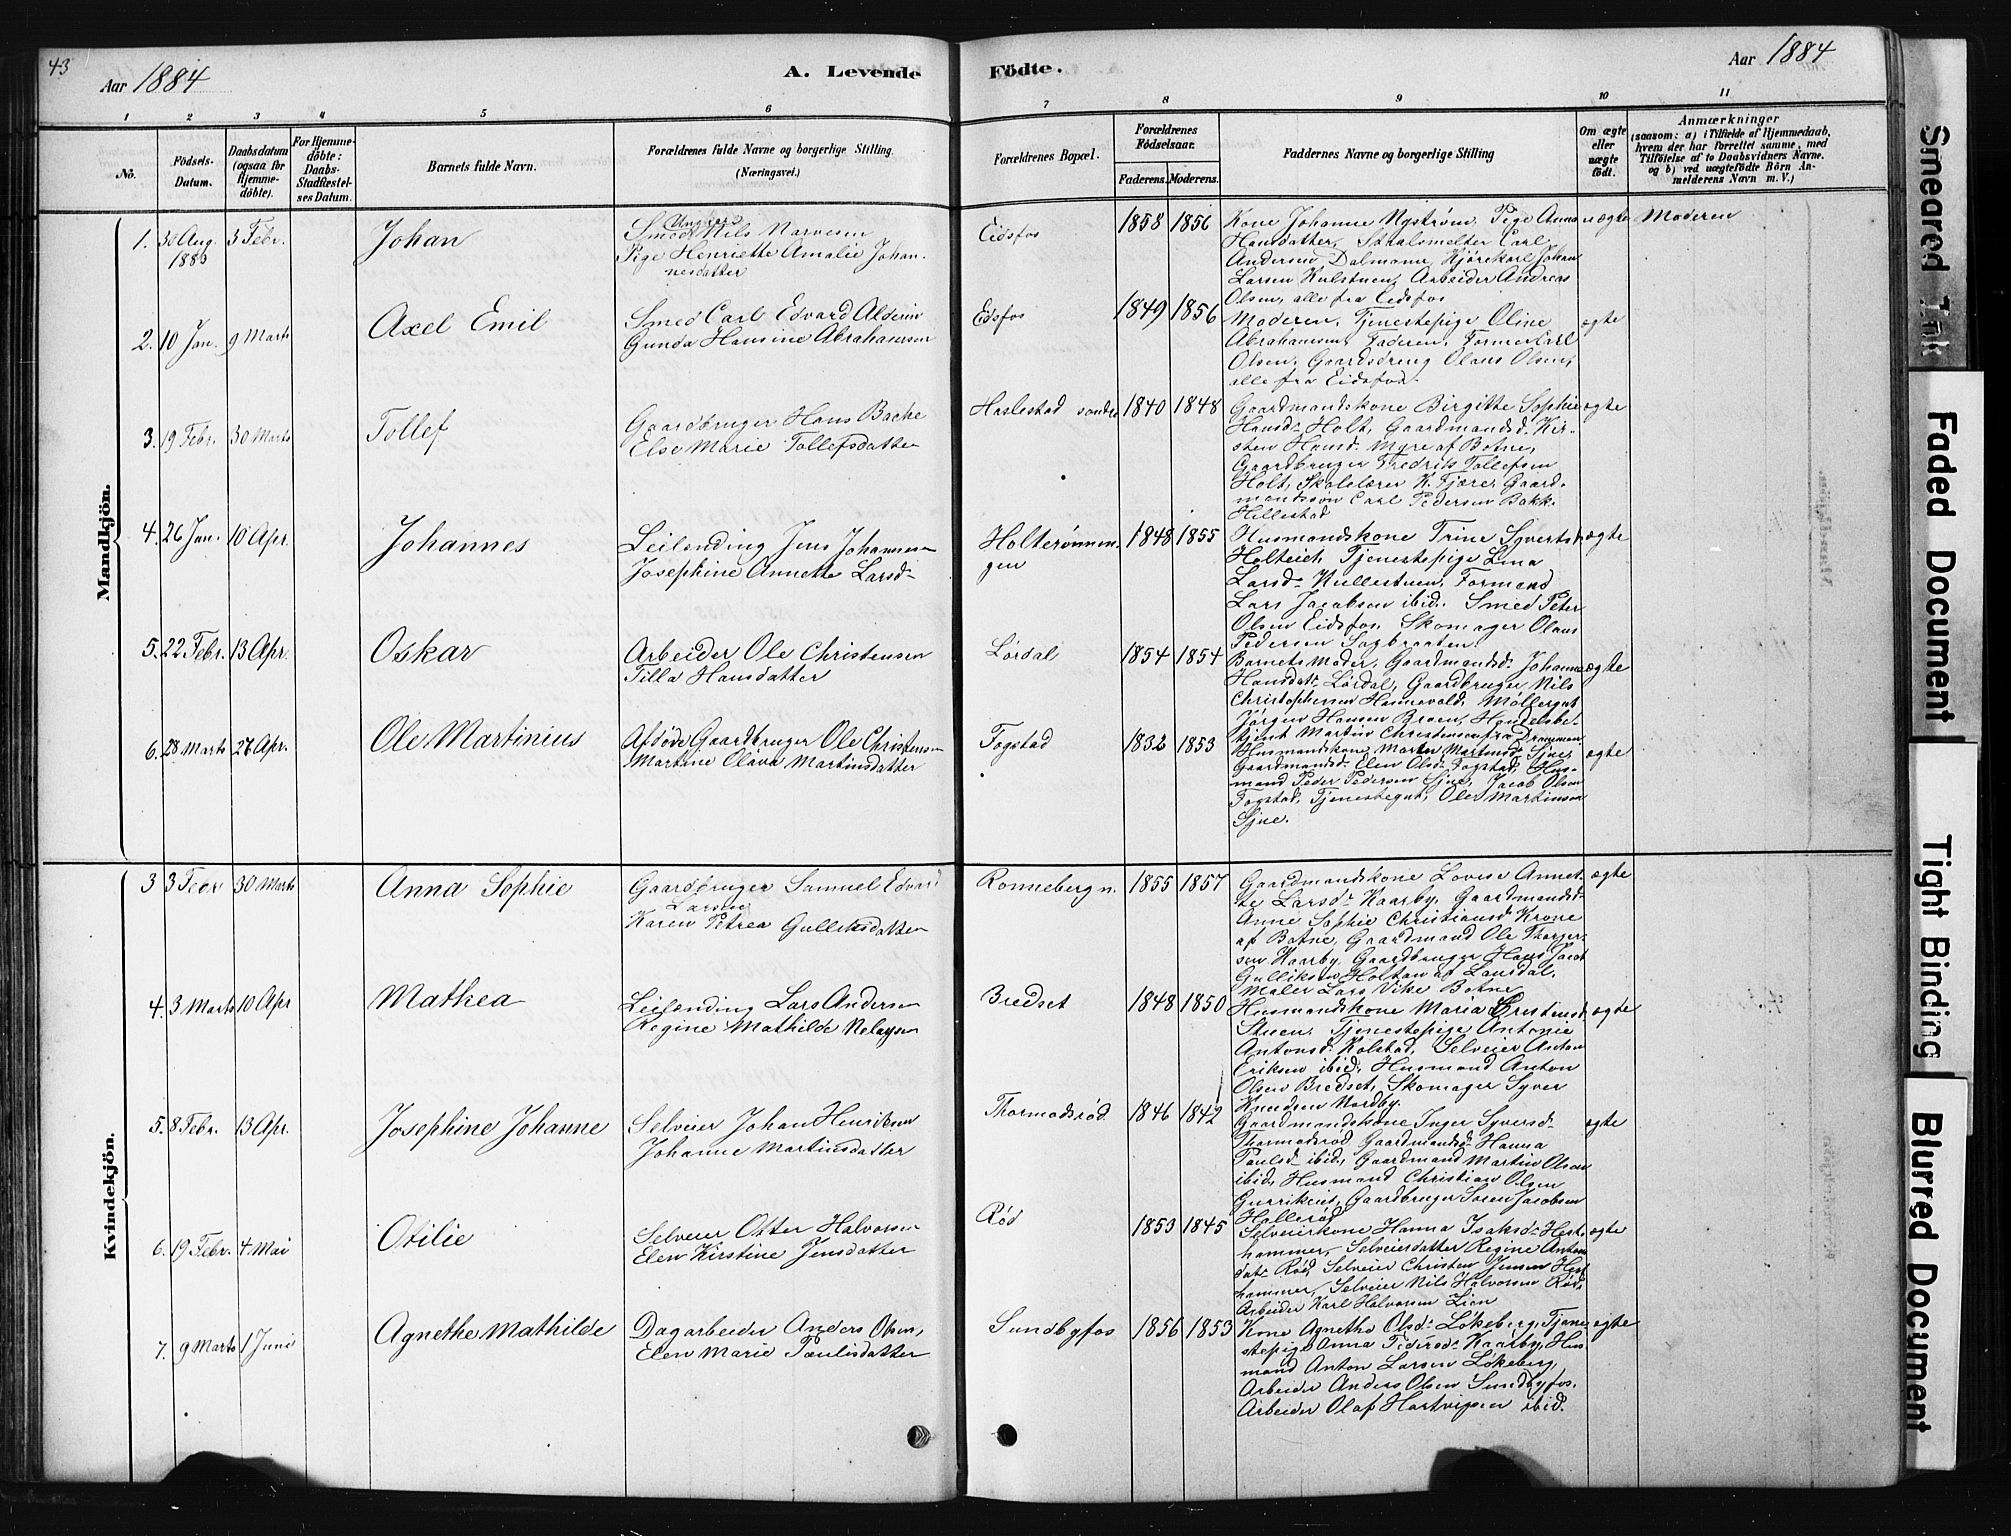 43
Aar 1884
A. Levende
Födte.
Aar 1884
1 2 3 4 5 6 7 8 9 10 11
No.
Födsels-
Datum.
Daabsdatum
(ogsaa for
Hjemme-
döbte).
For Hjemme-
döbte:
Daabs-
Stadfæstel-
ses Datum.
Barnets fulde Navn.
Forældrenes fulde Navne og borgerlige Stilling
(Næringsvei.)
Forældrenes Bopæl.
Forældrenes
Födselsaar.
Faderens. Moderens.
Faddernes Navne og borgerlige Stilling
Om ægte
eller
uægte
födt.
Anmærkninger
(saasom: a) i Tilfælde af Hjemmedaab,
hvem der har forrettet samme, med
Tilföielse af to Daabsvidners Navne.
og b) ved uægtefödte Börn An-
melderens Navn m. V.)
Mandkjön.
1. 30 Aug. 3 Febr.
1883
Johan
Ungkarl
Smed Nils Narvesen
Pige Henriette Amalie Johan-
nesdatter
Eidsfos
1858 1856
Kone Johanne Nyström, Pige Anna
Hansdatter, Staalsmelter Carl
Andersen Dalmann, Kjörekarl Johan
Larsen Kulstuen, Arbeider Andreas
Olsen, alle fra Eidsfos
uægte
Moderen
2. 10 Jan. 9 Marts
Axel Emil
Smed Carl Edvard Alderin
Gunda Hansine Abrahamsen
Eidsfos
1849 1856
Moderen, Tjenestepige Oline
Abrahamsen, Faderen, Former Carl
Olsen, Gaardsdreng Olaus Olsen,
alle fra Eidsfos.
ægte
3. 19 Febr. 30 Marts
Tollef
Gaardbruger Hans Bache
Else Marie Tollefsdatter
Haslestad söndre
1840 1848
Gaardmandskone Birgitte Sophie
Hansd. Holt, Gaardmandsd. Kir-
sten Hansd. Myre af Botne,
Gaardbruger Fredrik Tollefsen
Holt, Skolelærer K. Fjære, Gaard-
mandssön Carl Pedersen Bakk.
Hillestad
ægte
4. 26 Jan. 10 Apr.
Johannes
Leilending Jens Johannesen
Josephine Annette Larsd.
Holterönnin-
gen
1848 1855
Husmandskone Trine Syvertsd.
Holteiet, Tjenestepige Lina
Larsd. Kullestuen, Formand
Lars Jacobsen ibid. Smed Peter
Olsen Eidsfos, Skomager Olaus
Pedersen Sagbraaten.
ægte
5. 22 Febr. 13 Apr.
Oskar
Arbeider Ole Christensen
Tilla Hansdatter
Lördal
1854 1854
Barnets Moder, Gaardmandsd. Johanne
Hansdat. Lördal, Gaardbruger Nils
Christophersen Hennevold, Möllergut
Jörgen Hansen Braen, Handelsbe-
tjent Martin Christensen fra Drammen
ægte
6. 28 Marts 27 Apr.
Ole Martinius
Afdöde Gaardbruger Ole Christensen
Martine Olava Martinsdatter
Fogstad
1832 1853
Husmandskone Marte Martinsd. Sjue,
Gaardmandsd. Elen Olsd. Fogstad, Hus-
mand Peder Pedersen Sjue, Jacob Olsen
Fogstad, Tjenestegut, Ole Martinsen
Sjue.
ægte
Kvindekjön.
3 3 Febr 30 Marts
Anna Sophie
Gaardbruger Samuel Edvard
Larsen
Karen Petrea Gulliksdatter
Ronneberg n.
1855 1857
Gaardmandskone Lovise Annet-
te Larsd. Kaarby, Gaardmandsd.
Anne Sophie Christiansd. Krone
af Botne, Gaardmand Ole Thorger-
sen Kaarby, Gaardbruger Hans Jacob
Gulliksen Holtan af Laurdal,
Maler Lars Vike Botne
ægte
4. 3 Marts 10 Apr
Mathea
Leilending Lars Andersen
Regine Mathilde
Bredset
1848 1850
Husmandskone Maria
Stuen, Tjenestepige Antonie
Antonsd. Kolstad, Selveier Anton
Eriksen ibid, Husmand Anton
Olsen Bredset, Skomager Syver
Knudsen Nordby.
ægte
5. 8 Febr. 13 Apr.
Josephine Johanne
Selveier Johan Henriksen
Johanne Martinsdatter
Thormodsröd
1846 1842
Gaardmandskone Inger Syversd.
Thormodsröd, Gaardmandsd. Hanna
Paulsd. ibid, Gaardmand Martin Olsen
ibid, Husmand Christian Olsen
Gaardbruger Sören Jacobsen
Holleröd
ægte
6. 19 Febr. 4 Mai
Otilie
Selveier Otter Halvorsen
Elen Kirstine Jensdatter
Röd
1853 1845
Selveierkone Hanna Isaksd. Hest-
hammer, Selveierdatter Regine Anton-
dat. Röd, Selveier Christen Jensen Hest-
hammer, Selveier Nils Halvorsen Röd,
Arbeider Karl Halvorsen Lien
ægte
7. 9 Marts 1 Juni
Agnethe Mathilde
Dagarbeider Anders Olsen,
Elen Marie Paulsdatter
Sundbyfos
1856 1853
Kone Agnethe Olsd. Lökeberg, Tjene-
stepige Anna Pedersd. Kaarby, Hus-
mand Anton Larsen Lökeberg,
Arbeider Anders Olsen Sundbyfos,
Arbeider Olaf Hartvigsen ibid.
ægte
Smeared Ink
Faded Document
Tight Binding
Blurred Document